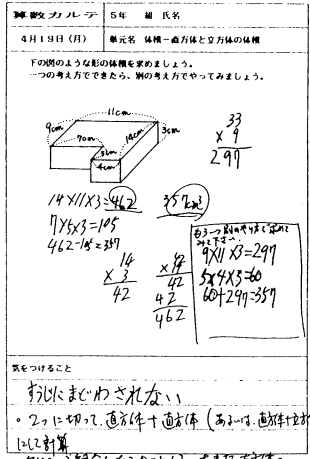 算数カルテ 5年 組 氏名
4月19日(月) 単元名 体積－直方体と立方体の体積
下の図のような形の体積を求めましょう。
一つの考え方でできたら、別の考え方でやってみましょう。
11cm
9cm
7cm
14cm
3cm
4cm
33
× 9
297
14×11×3=462
357cm3
7×5×3=105
462-105=357
14
× 3
42
42
42
462
もう一つ別のやり方で求めて
みて下さい。
9×11×3=297
5×4×3=60
60+297=357
気をつけること
すうじにまどわされない
。2つに切って、直方体+直方体(あるいは、直方体+立方
にして計算